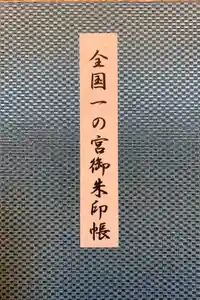 全国一の宮御朱印帳